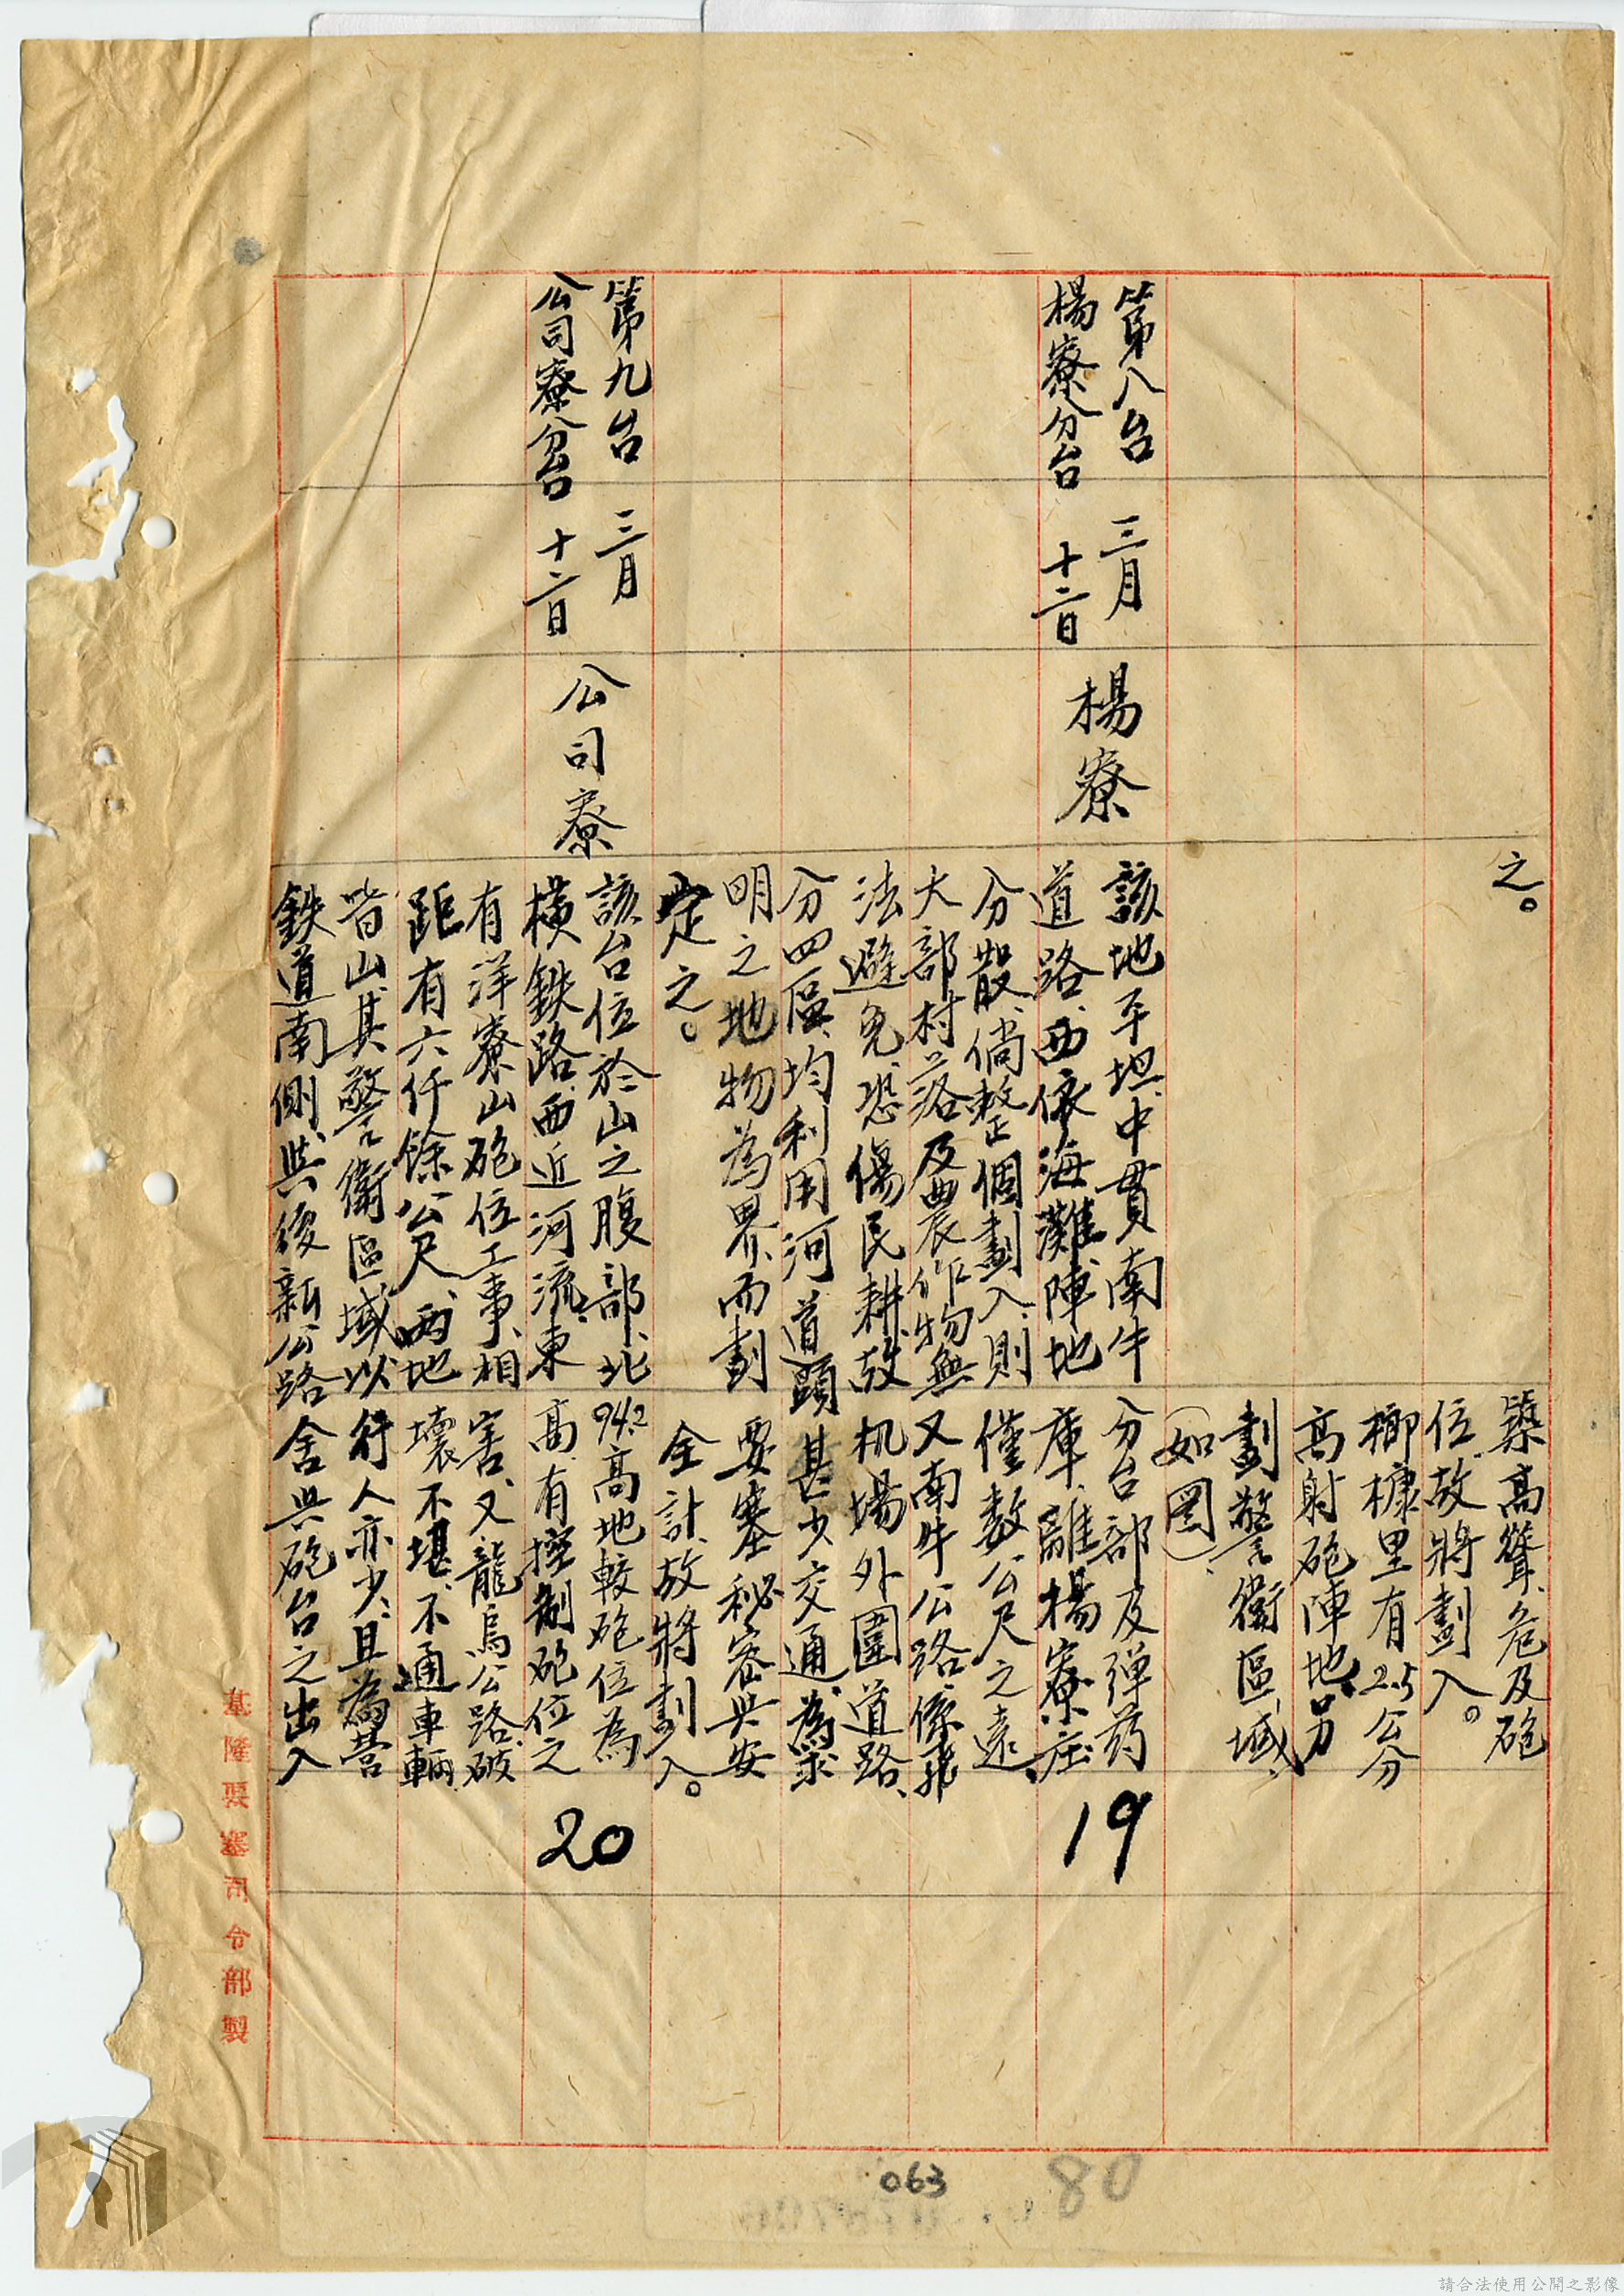 之。
築高聳、危及砲
位、故將劃入。
榔槺里有2.5公分
高射砲陣地、另
劃警衛區域、
（如圖）、
第八台
楊寮分台
三月
十二日
楊寮
該地平坦、中貫南牛
道路、西依海灘、陣地
分散、倘整個劃入、則
大部村落及農作物無
法避免、恐傷民耕、故
分四區、均利用河道顯
明之地物為界、而劃
定之。
分台部及彈药
庫、離楊寮庄
僅數公尺之遠、
又南牛公路、係飛
机場外圍道路、
甚少交通、為求
要塞秘密與安
全計、故將劃入。
19
第九台
公司寮分台
三月
十二日
公司寮
該台位於山之腹部、北
橫鉄路、西近河流、東
有洋寮山砲位工事、相
距有六仟餘公尺、兩地
皆山、其警衛區域、以
鉄道南側、與後新公路
94.2高地較砲位為
高、有控制砲位之
害、又龍烏公路、破
壞不堪、不通車輛、
行人亦少、且為營
舍與砲台之出入
20
基隆要塞司令部製
063
80
請合法使用公開之影像